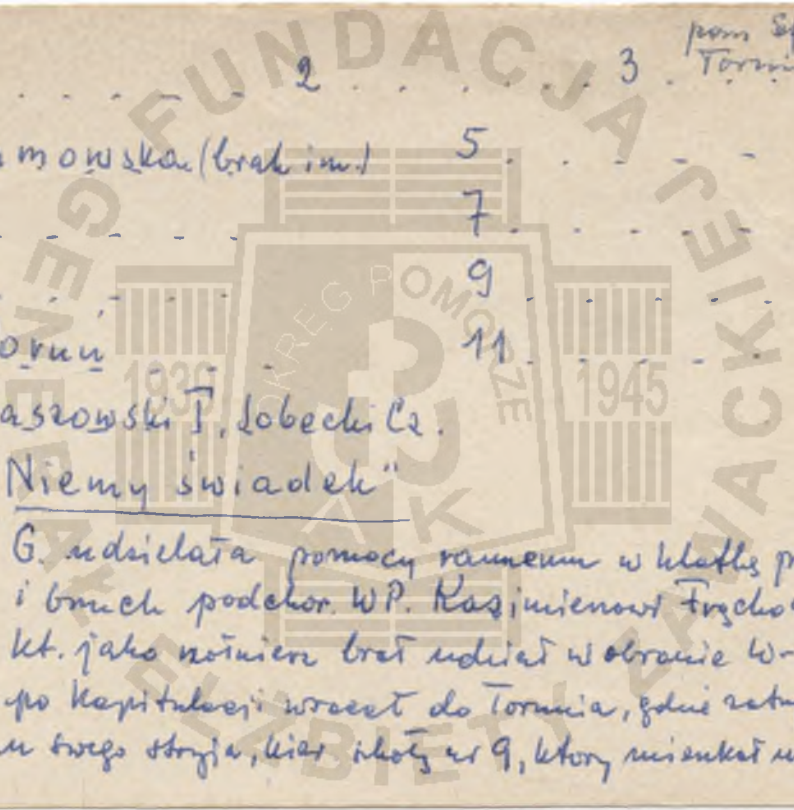 pom
2 . . . . . 3 .
mowska (brak im.) 5 . - - - -
- - - - - 7 . - - - -
9 - - - -
11 - - - -
aszowski T, Łobecki Cz.
Niemy świadek"
G. udzielała pomocy rannemu w klatkę
i brzuch podchor. WP. Kazimierzowi
kt. jako żołnierz brał udział w obronie W-
po kapitulacji wracał do Torunia, gdzie
swego stryja, kier szkoły nr 9, który mieszkał
FUNDACJA GENERAŁ ELŻBIETY ZAWACKIEJ
OKRĘG POMORZE
1939 1945
AK